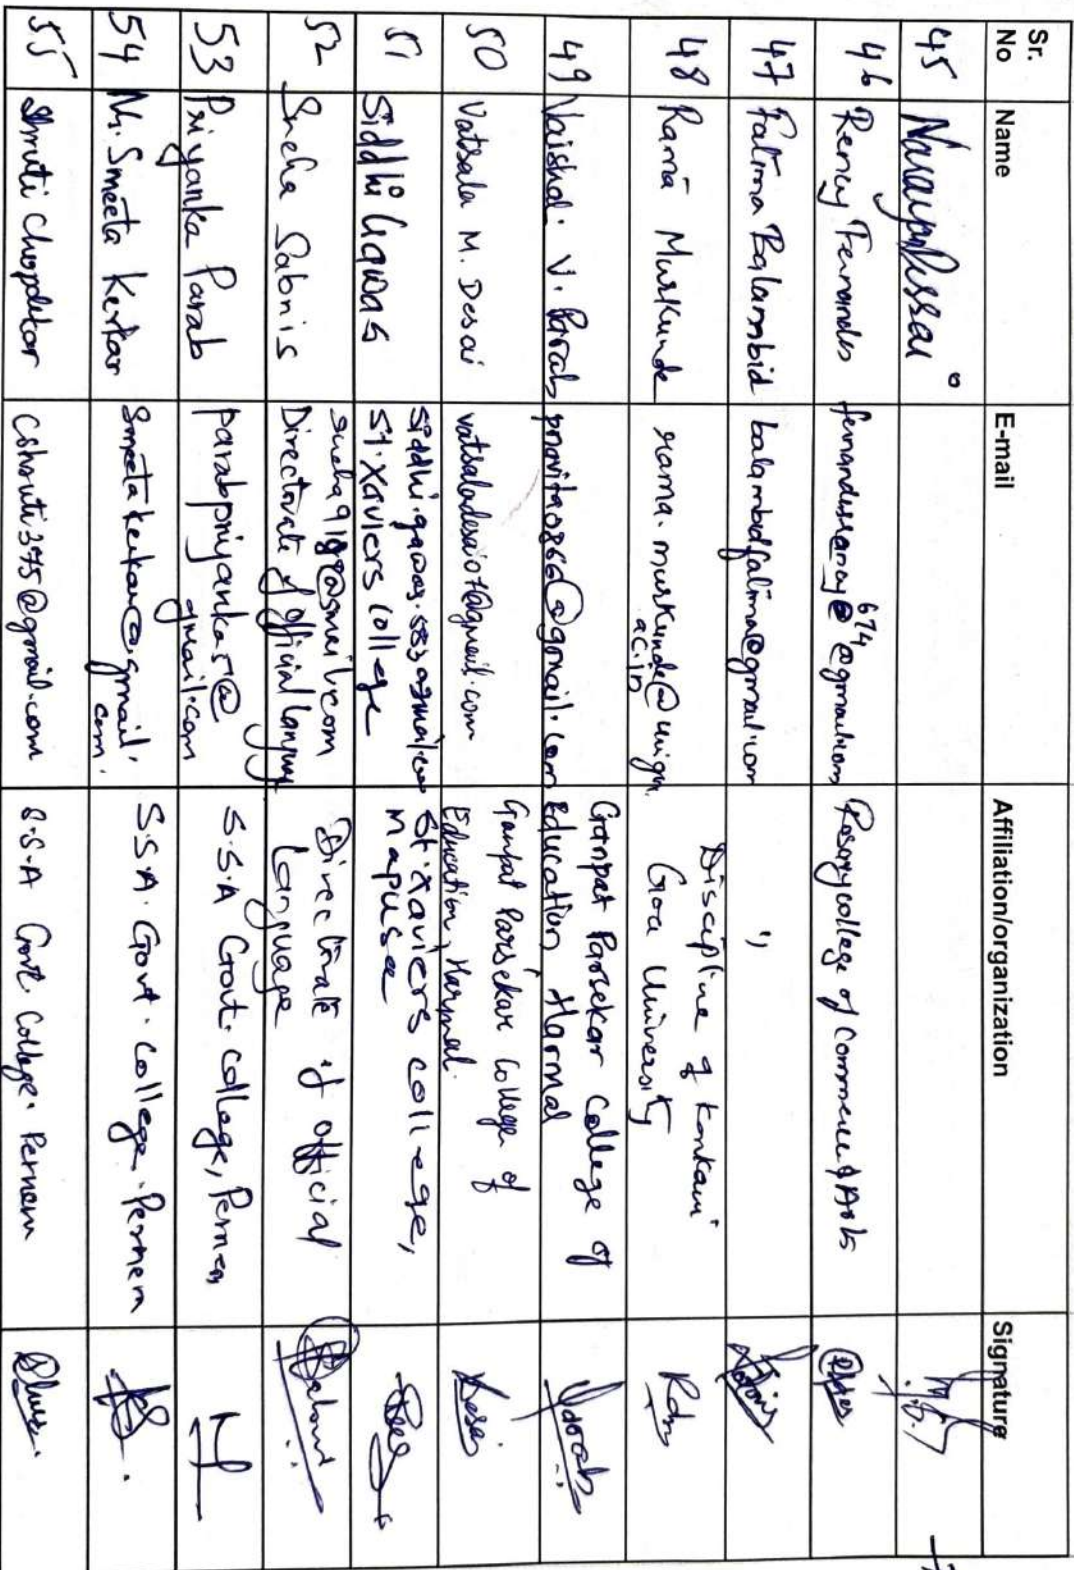 Sr. No Name E-mail Affiliation/organization Signature
45
46 Remcy Fernandes @gmail.com Rosary college of Commerce & Arts
674
47 Fatima Balambid balambidfatima@gmail.com "
48 Rama Murkunde rama.murkunde@unigoa.
ac.in
Discipline of Konkani
Goa University
49 Vaishali V. Parab pnavita0866@gmail.com
Ganpat Parsekar College of
Education, Harmal
50 Vatsala M. Desai vatsaladesai07@gmail.com
Ganpat Parsekar College of
Education, Harmal.
Desai
51 Siddhi Gawas siddhi.gawas.583@gmail.com
St. Xaviers College
St. Xaviers college,
Mapusa
52 Sneha Sabnis sneha9189@gmail.com
Directorate of Official Language
Directorate of official
Language
53 Priyanka Parab parabpriyanka5@
gmail.com
S.S.A Govt. College, Pernem
54 Ms. Smeeta Kerkar Smeetakerkar@gmail.
com.
S.S.A. Govt. College. Pernem
55 Shruti Chopdekar Cshruti375@gmail.com S.S.A Govt. College. Pernem